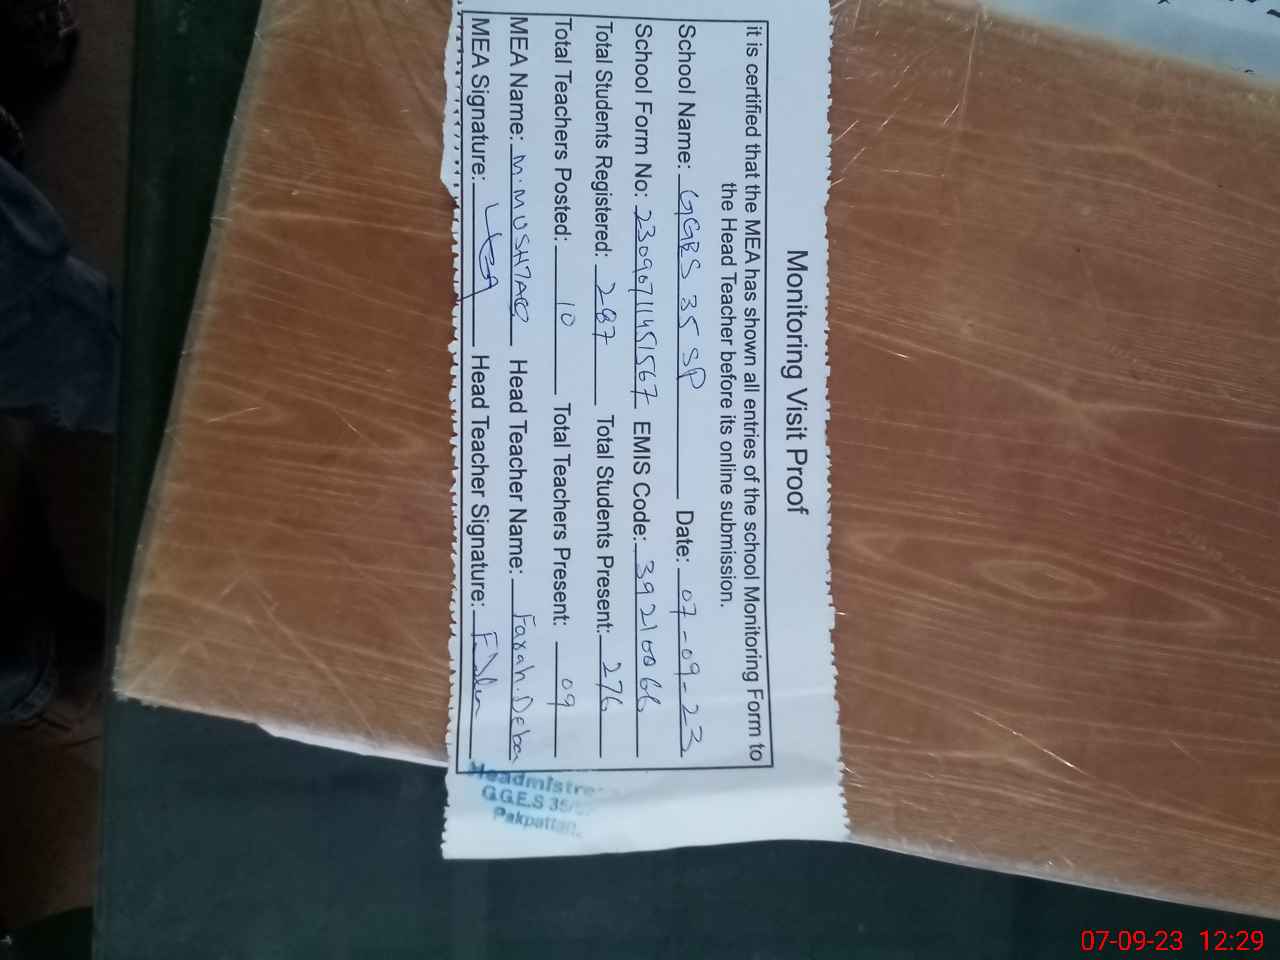 Monitoring Visit Proof
it is certified that the MEA has shown all entries of the school Monitoring Form to
the Head Teacher before its online submission.
School Name: GGES 35 SP Date: 07-09-23
School Form No: 23090711451567 EMIS Code: 39210066
Total Students Registered: 287 Total Students Present: 276
Total Teachers Posted: 10 Total Teachers Present: 09
MEA Name: M.MUSHTAQ Head Teacher Name: Farah.Deba
MEA Signature: Head Teacher Signature:
Headmistre
G.G.E.S 35/
Pakpattan.
07-09-23 12:29